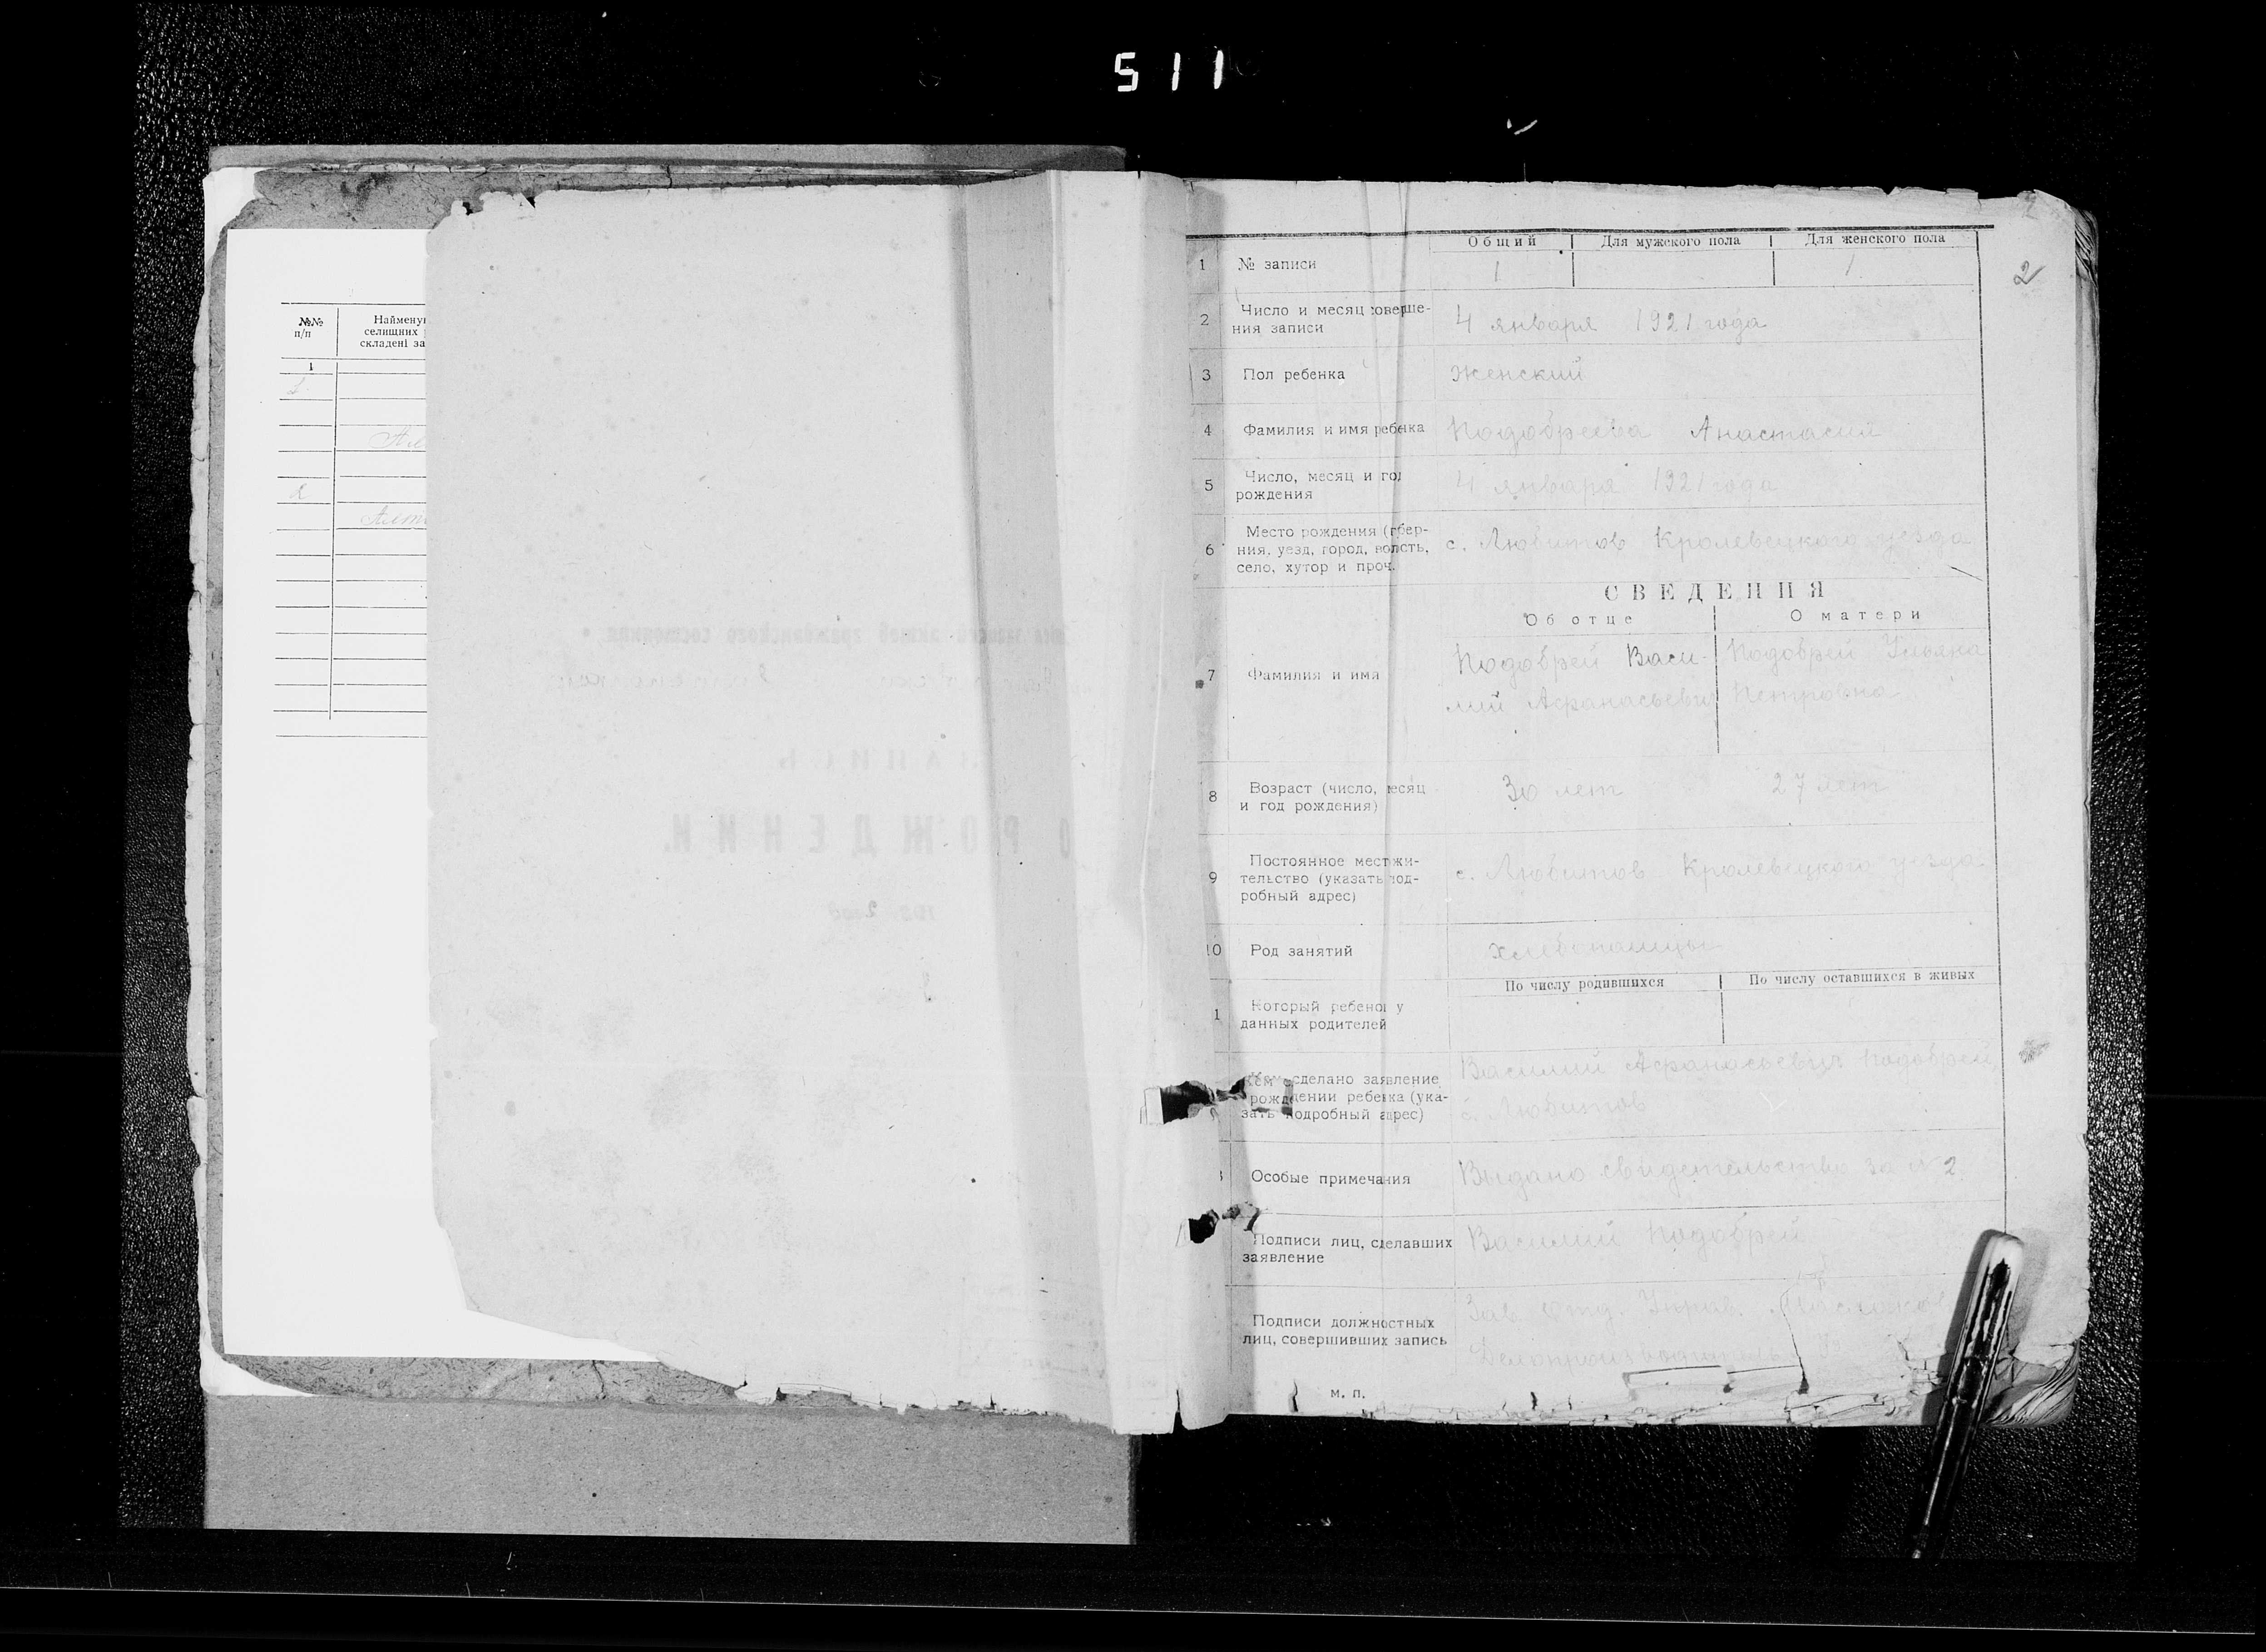 511
№№ п/п
Наймену
селищних
складені за
1
2
2
Общий | Для мужского пола | Для женского пола
1 № записи 1 1
2
2 Число и месяц соверше-
ния записи 4 января 1921 года
3 Пол ребенка Женский
4 Фамилия и имя ребенка Подобреева Анастасия
5 Число, месяц и год
рождения 4 января 1921 года
6 Место рождения (губер-
ния, уезд, город, волость,
село, хутор и проч. с. Любитов Кролевецкого уезда
СВЕДЕНИЯ
Об отце | О матери
7 Фамилия и имя
Подобрей Васи- | Подобрей Ульяна
лий Афанасьевич | Петровна
8 Возраст (число, месяц
и год рождения) 30 лет 27 лет
9 Постоянное местожи-
тельство (указать под-
робный адрес) с. Любитов Кролевецкого уезда
10 Род занятий хлебопашцы
По числу родившихся | По числу оставшихся в живых
1 Который ребенок у
данных родителей
Кем сделано заявление
рождении ребенка (ука-
зать подробный адрес)
Василий Афанасьевич Подобрей,
с. Любитов
Особые примечания Выдано свидетельство за № 2
Подписи лиц, сделавших
заявление Василий Подобрей
Подписи должностных
лиц, совершивших запись
Зав. Отд. Управ.
Делопроизводитель
м. п.
ЗАПИСЬ
О РОЖДЕНИИ.